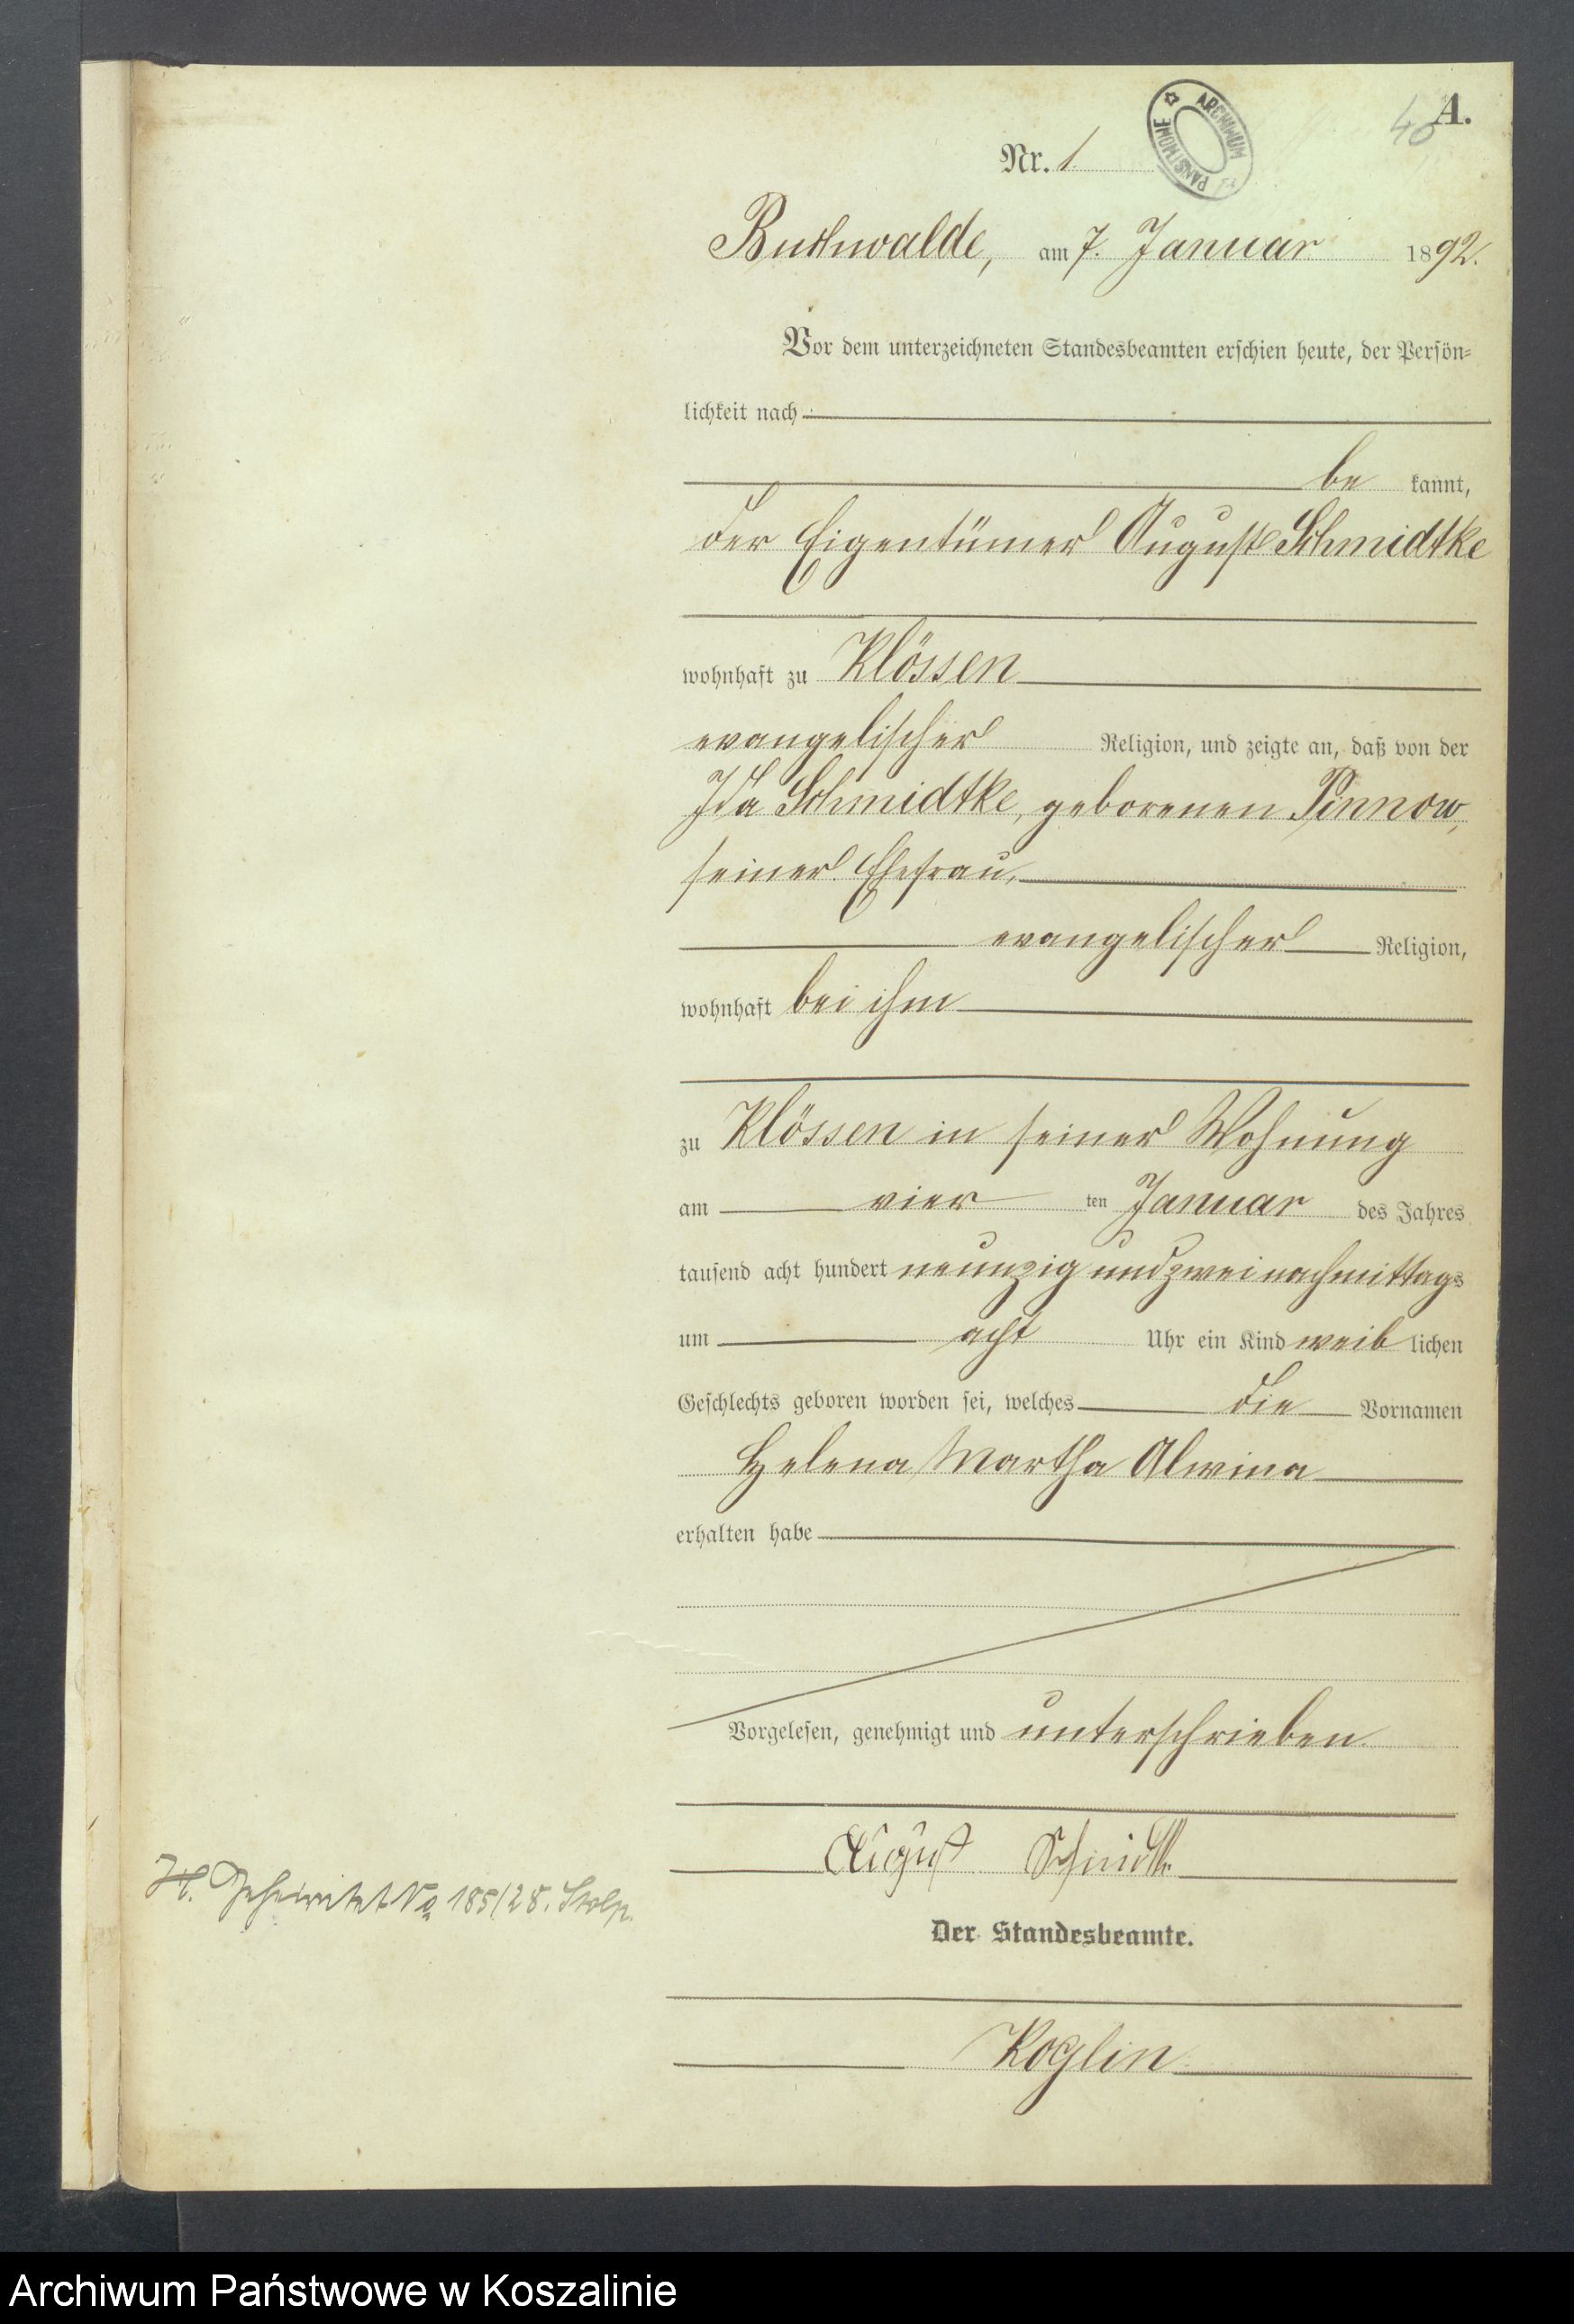 A.
40
ARCHIWUM PAŃSTWOWE
Nr. 1
Buchwalde, am 7. Januar 1892.
Vor dem unterzeichneten Standesbeamten erschien heute, der Persön-
lichkeit nach
be kannt,
der Eigentümer August Schmidtke
wohnhaft zu Klössen
evangelischer Religion, und zeigte an, daß von der
Ida Schmidtke, geborenen Pinnow,
seiner Ehefrau,
evangelischer Religion,
wohnhaft bei ihm
zu Klössen in seiner Wohnung
am vier ten Januar des Jahres
tausend acht hundert neunzig und zwei nachmittags
um acht Uhr ein Kind weib lichen
Geschlechts geboren worden sei, welches die Vornamen
Helena Martha Alwina
erhalten habe
Vorgelesen, genehmigt und unterschrieben.
August Schmidtke
No 185/28. Stolp.
Der Standesbeamte.
Koglin
Archiwum Państwowe w Koszalinie